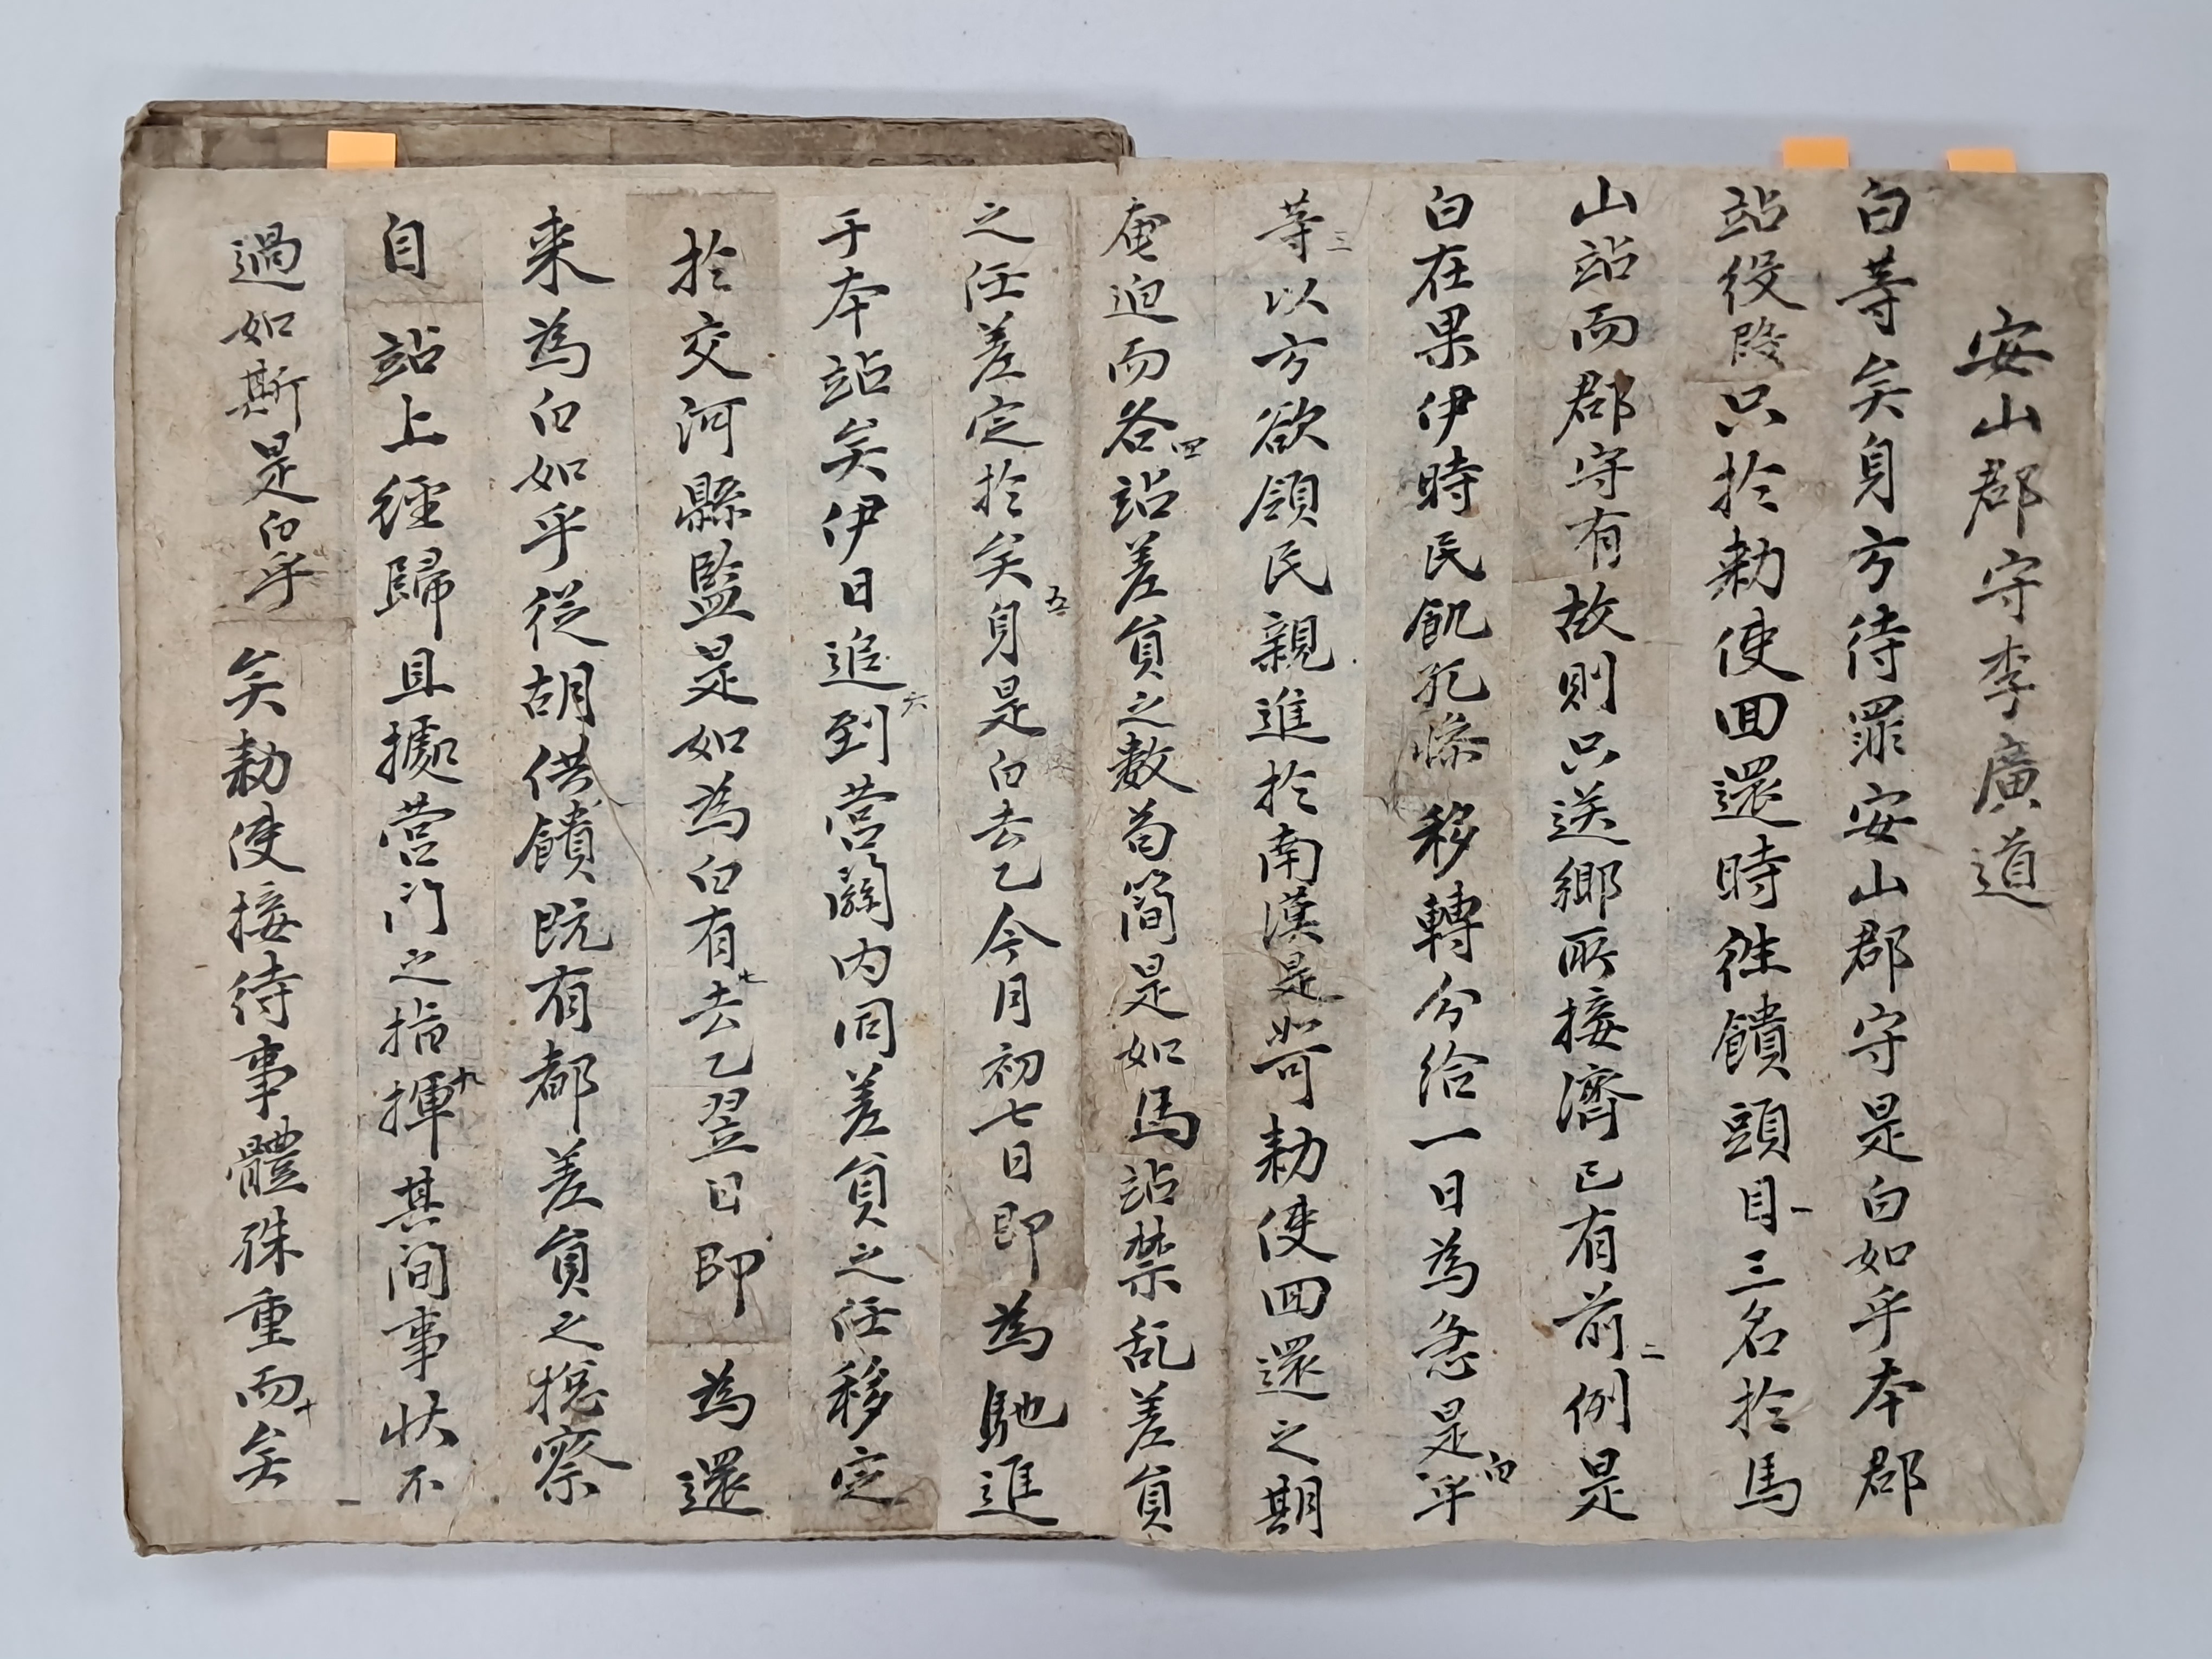 安山郡守李廣道
白等矣身方待罪安山郡守是白如乎本郡
站役段只於勅使回還時徃饋頭目一三名於馬
山站而郡守有故則只送鄉所接濟已有前二例是
白在果伊時民飢 移轉分給一日為急是白乎
等三以方欲領民親進於南漢是 勅使回還之期
奄迫而各四站差負之數苟簡是如馬站禁乱差負
之任差定於矣五身是白去乙今月初七日即為馳進
于本站矣伊日追六到营關内同差負之任移定
於交河縣監是如為白有七去乙翌日即為還
来為白如乎從胡供饋既有都差負之摠察
自站上徑歸且據营门之指揮九其間事状不
過如斯是白乎矣勅使接待事體殊重而十矣